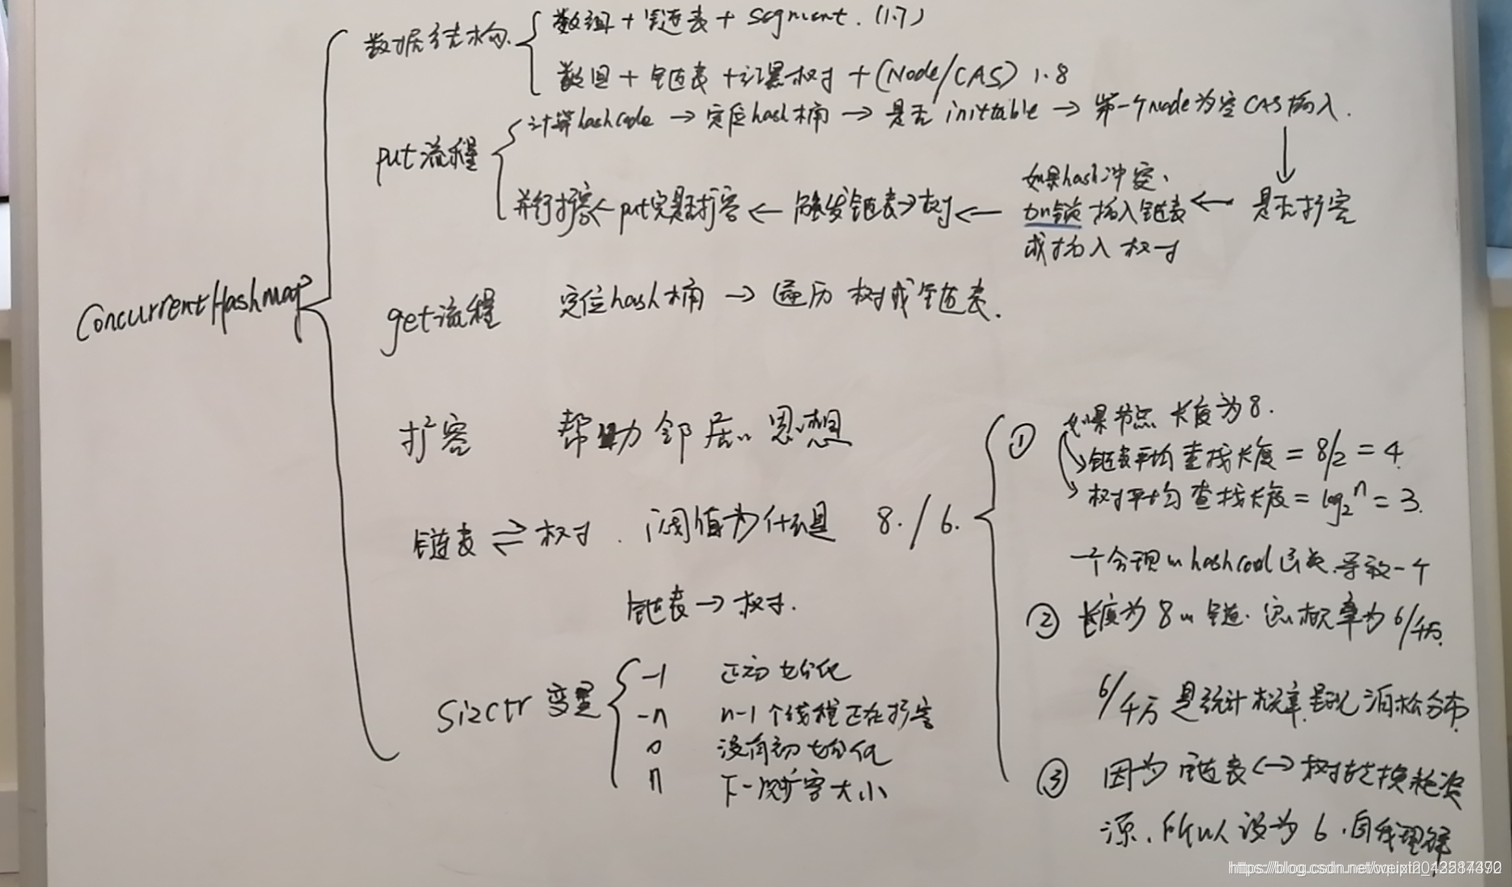 ConcurrentHashMap
数据结构.
数组 + 链表 + Segment. (1.7)
数组 + 链表 + 红黑树 + (Node/CAS) 1.8
put流程
计算hashcode → 定位hash桶 → 是否 inittable → 第一个node为空CAS插入.
是否扩容
如果hash冲突、
加锁 插入链表
或插入 树
← 触发链表→树
← put完是否扩容
并行扩容←
get流程 定位hash桶 → 遍历 树或链表.
扩容 帮助邻居 思想
链表 ⇌ 树. 阈值为什么是 8. / 6.
链表 → 树.
① 如果节点 长度为8.
链表平均 查找长度 = 8/2 = 4.
树平均 查找长度 = log₂ⁿ = 3.
一个合理的 hashcod 函数.导致一个
② 长度为 8的 链. 的概率为 6/千万.
6/千万 是统计概率 泊松分布
③ 因为 链表 ↔ 树转换耗资
源, 所以 设为 6.
Sizctr 变量
-1 正初始化
-n n-1个线程正在扩容
0 没有初始化
n 下一次扩容大小